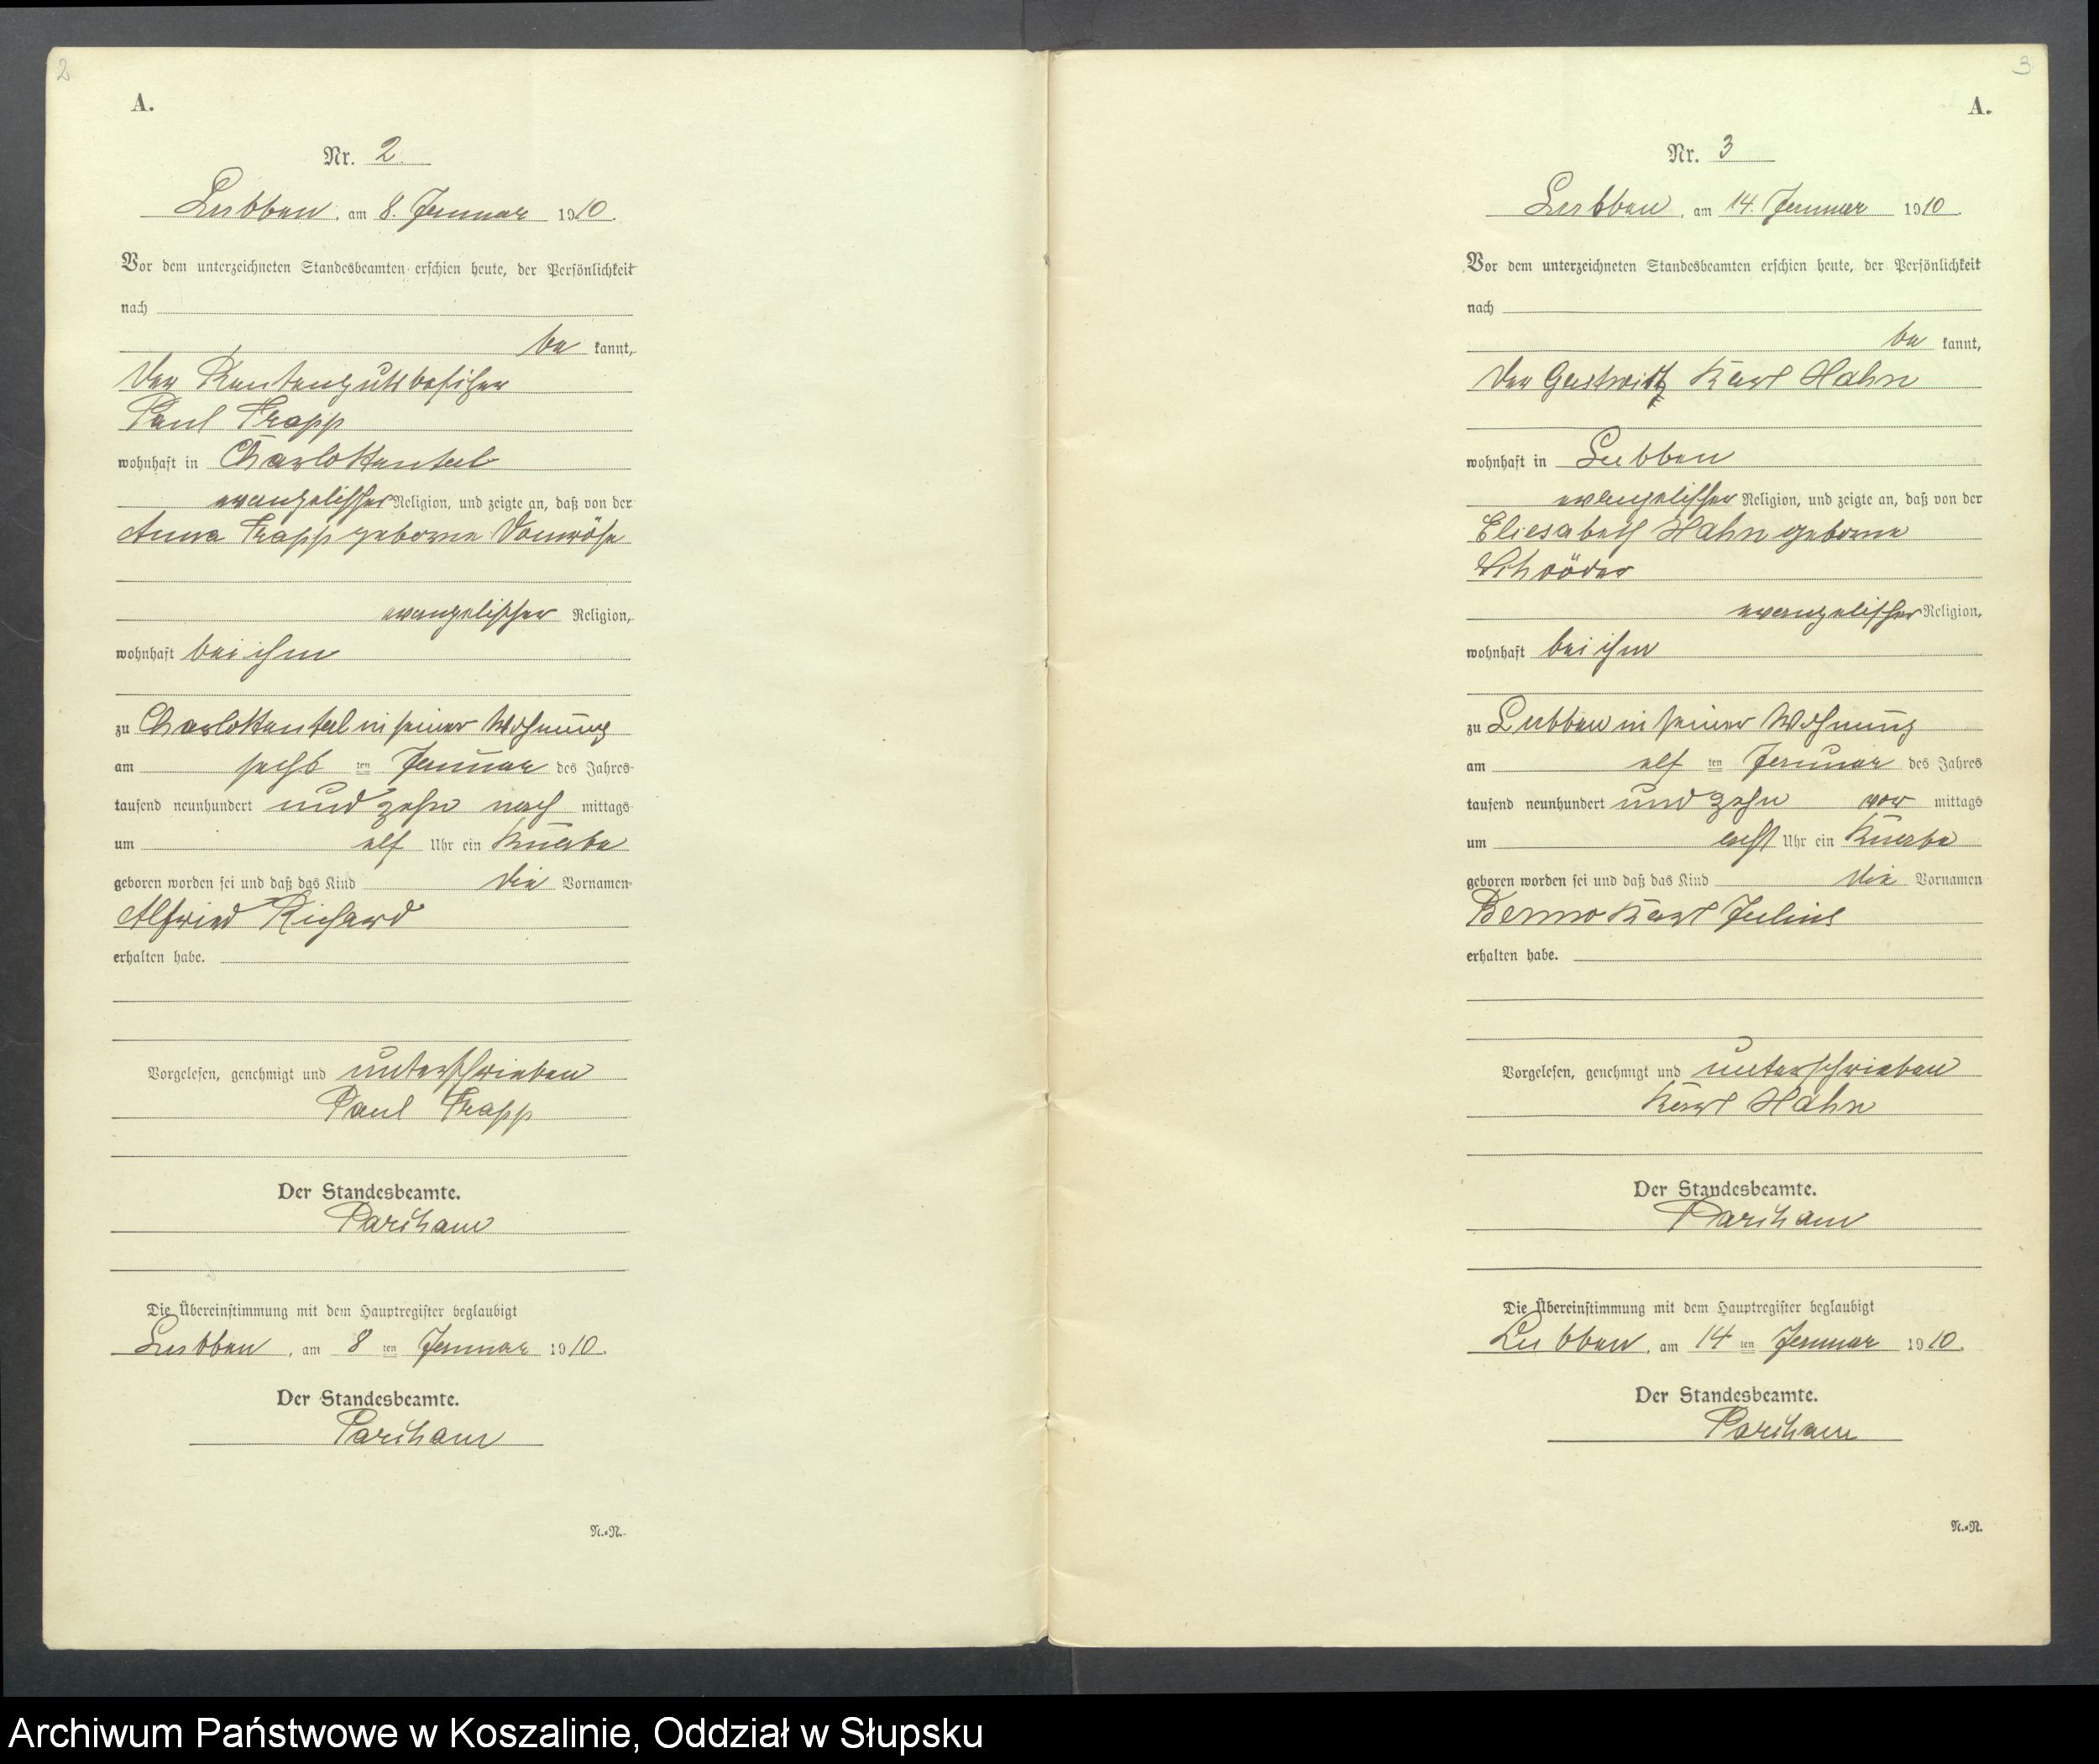 2
A.
Nr. 2.
Lubben, am 8. Januar 1910.
Vor dem unterzeichneten Standesbeamten erschien heute, der Persönlichkeit
nach
be kannt,
der Rentengutsbesitzer
Paul Trapp
wohnhaft in Charlottental
evangelischer Religion, und zeigte an, daß von der
Anna Trapp geborne
evangelischer Religion,
wohnhaft bei ihm
zu Charlottental in seiner Wohnung
am sechs ten Januar des Jahres
tausend neunhundert und zehn nach mittags
um elf Uhr ein Knabe
geboren worden sei und daß das Kind die Vornamen
Alfried Richard
erhalten habe.
Vorgelesen, genehmigt und unterschrieben
Paul Trapp
Der Standesbeamte.
Die Übereinstimmung mit dem Hauptregister beglaubigt
Lubben, am 8 ten Januar 1910.
Der Standesbeamte.
N.-N.
3
A.
Nr. 3
Lubben, am 14. Januar 1910.
Vor dem unterzeichneten Standesbeamten erschien heute, der Persönlichkeit
nach
be kannt,
der Gastwirth Karl Hahn
wohnhaft in Lubben
evangelischer Religion, und zeigte an, daß von der
Eliesabeth Hahn geborne
Schröder
evangelischer Religion,
wohnhaft bei ihm
zu Lubben in seiner Wohnung
am elf ten Januar des Jahres
tausend neunhundert und zehn vor mittags
um acht Uhr ein Knabe
geboren worden sei und daß das Kind die Vornamen
Benno Karl Julius
erhalten habe.
Vorgelesen, genehmigt und unterschrieben
Karl Hahn
Der Standesbeamte.
Die Übereinstimmung mit dem Hauptregister beglaubigt
Lubben, am 14 ten Januar 1910.
Der Standesbeamte.
N.-N.
Archiwum Państwowe w Koszalinie, Oddział w Słupsku